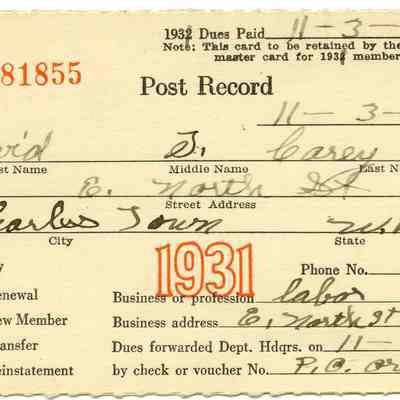 1932 Dues Paid 11-3-
Note: This card to be retained by the
master card for 1932 member
81855
Post Record
11-3-
vid S. Carey
st Name Middle Name Last N
E. North St
Street Address
Charles Town W.
City State
y 1931 Phone No.
enewal Business or profession labor
ew Member Business address E. North St
ansfer Dues forwarded Dept. Hdqrs. on 11-
einstatement by check or voucher No. P.O. or